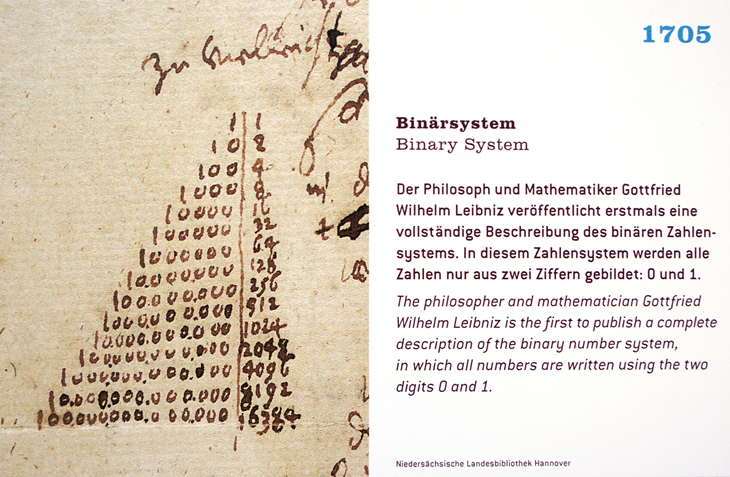 1 1
10 2
100 4
1000 8
10000 16
100000 32
1000000 64
10000000 128
100000000 256
1000000000 512
10000000000 1024
100000000000 2048
1000000000000 4096
10000000000000 8192
100000000000000 16384
1705
Binärsystem
Binary System
Der Philosoph und Mathematiker Gottfried
Wilhelm Leibniz veröffentlicht erstmals eine
vollständige Beschreibung des binären Zahlen-
systems. In diesem Zahlensystem werden alle
Zahlen nur aus zwei Ziffern gebildet: 0 und 1.
The philosopher and mathematician Gottfried
Wilhelm Leibniz is the first to publish a complete
description of the binary number system,
in which all numbers are written using the two
digits 0 and 1.
Niedersächsische Landesbibliothek Hannover